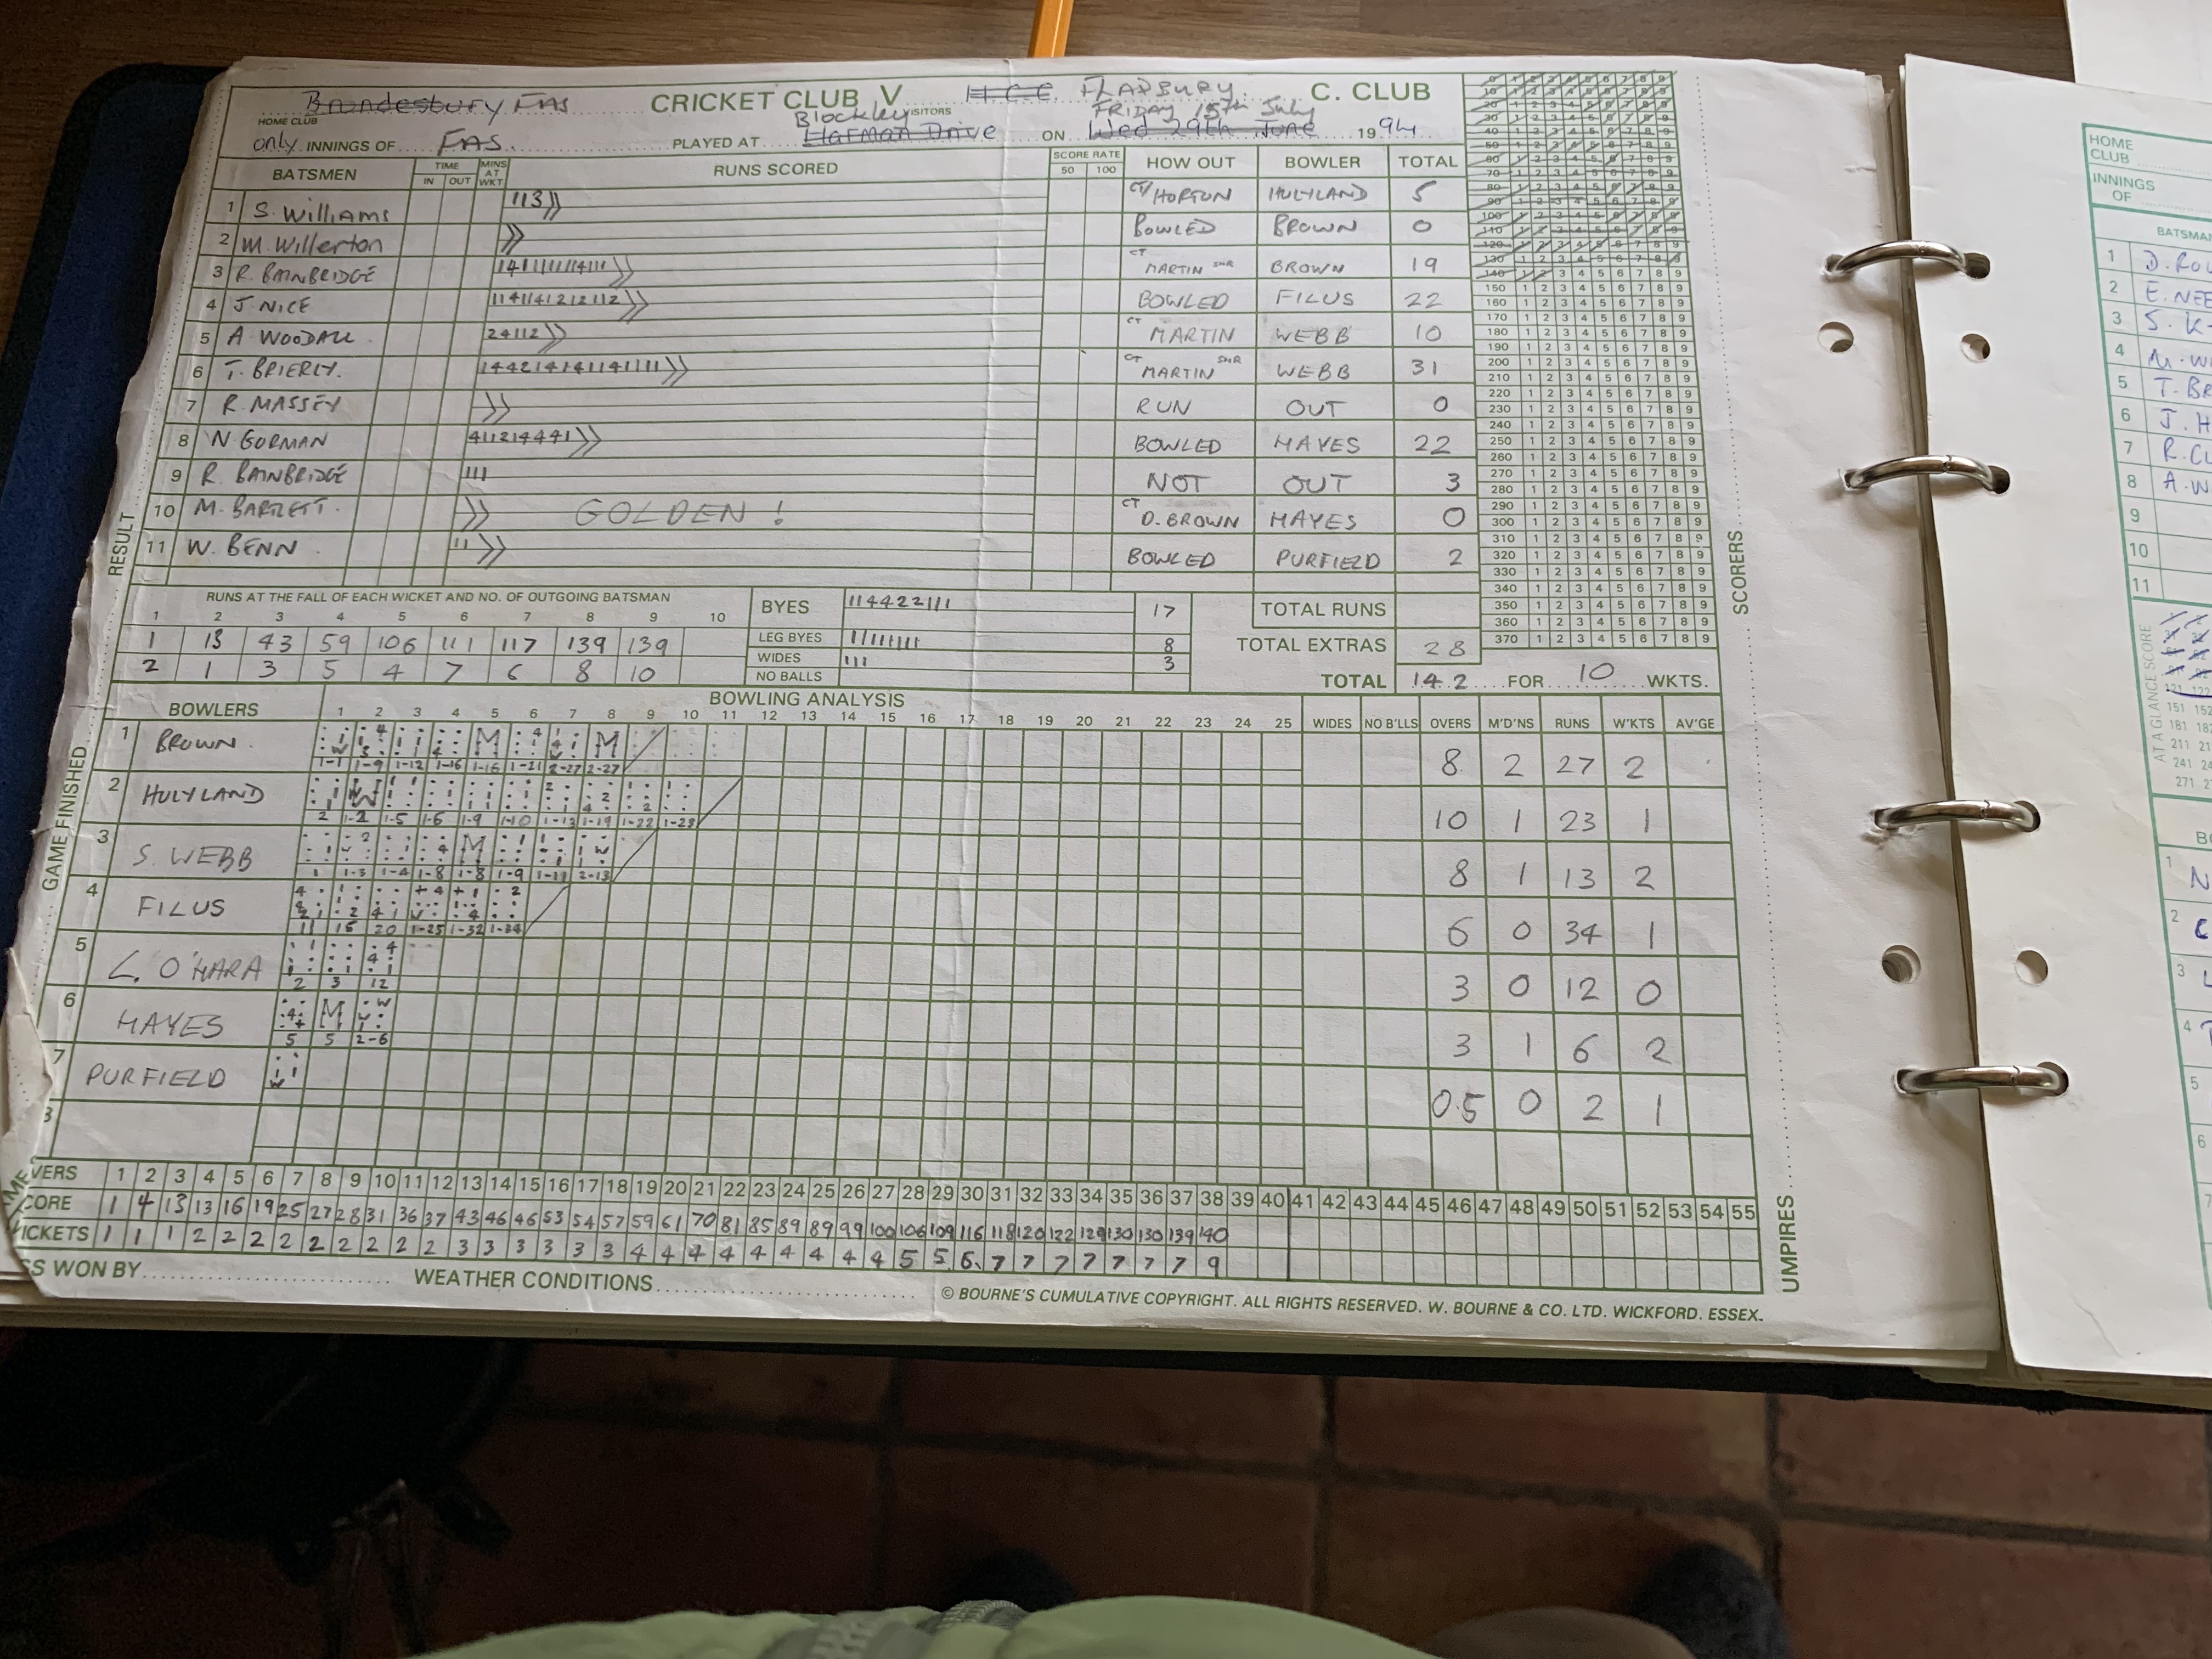 Brondesbury FAS CRICKET CLUB V H.C.C FLADBURY C. CLUB
HOME CLUB Blockley VISITORS FRIDAY 15th July
only INNINGS OF FAS. PLAYED AT Harman Drive ON Wed 29th June 1994
BATSMEN TIME IN OUT MINS AT WKT RUNS SCORED SCORE RATE 50 100 HOW OUT BOWLER TOTAL
1 S. Williams 113 CT/ HORTON HULYLAND 5
2 M. Willerton BOWLED BROWN 0
3 R. BAINBRIDGE CT MARTIN SNR BROWN 19
4 J. NICE 11411412122112 BOWLED FILUS 22
5 A. WOODALL 24112 CT MARTIN WEBB 10
6 T. BRIERLY. CT MARTIN SNR WEBB 31
7 R. MASSEY RUN OUT 0
8 N. GORMAN 411214441 BOWLED HAYES 22
9 R. BAINBRIDGE 111 NOT OUT 3
10 M. BARTLETT. GOLDEN! CT D. BROWN HAYES 0
11 W. BENN 11 BOWLED PURFIELD 2
RESULT
RUNS AT THE FALL OF EACH WICKET AND NO. OF OUTGOING BATSMAN
1 2 3 4 5 6 7 8 9 10
1 13 43 59 106 111 117 139 139
2 1 3 5 4 7 6 8 10
BYES 114422111 17 TOTAL RUNS
LEG BYES 11111111 8 TOTAL EXTRAS 28
WIDES 111 3
NO BALLS TOTAL 142 FOR 10 WKTS.
BOWLING ANALYSIS
BOWLERS 1 2 3 4 5 6 7 8 9 10 11 12 13 14 15 16 17 18 19 20 21 22 23 24 25 WIDES NO B'LLS OVERS M'D'NS RUNS W'KTS AV'GE
1 BROWN. 1-1 1-9 1-12 1-16 1-16 1-21 2-27 2-27 8 2 27 2
2 HULYLAND 2 1-2 1-5 1-6 1-9 1-10 1-13 1-19 1-22 1-23 10 1 23 1
3 S. WEBB 1 1-3 1-4 1-8 1-8 1-9 1-11 2-13 8 1 13 2
4 FILUS 11 15 20 1-25 1-32 1-34 6 0 34 1
5 L. O'HARA 2 3 12 3 0 12 0
6 HAYES 5 5 2-6 3 1 6 2
7 PURFIELD 0.5 0 2 1
GAME FINISHED
VERS 1 2 3 4 5 6 7 8 9 10 11 12 13 14 15 16 17 18 19 20 21 22 23 24 25 26 27 28 29 30 31 32 33 34 35 36 37 38 39 40 41 42 43 44 45 46 47 48 49 50 51 52 53 54 55
CORE 1 4 13 13 16 19 25 27 28 31 36 37 43 46 46 53 54 57 59 61 70 81 85 89 89 99 100 106 109 116 118 120 122 129 130 130 139 140
ICKETS 1 1 1 2 2 2 2 2 2 2 2 2 3 3 3 3 3 3 4 4 4 4 4 4 4 4 4 5 5 6 7 7 7 7 7 7 7 9
SS WON BY WEATHER CONDITIONS
© BOURNE'S CUMULATIVE COPYRIGHT. ALL RIGHTS RESERVED. W. BOURNE & CO. LTD. WICKFORD. ESSEX.
SCORERS
UMPIRES
HOME CLUB
INNINGS OF
BATSMA
1 D. ROU
2 E. NEE
3 S. K
4 M. W
5 T. BR
6 J. H
7 R. CL
8 A. W
9
10
11
AT A GLANCE SCORE